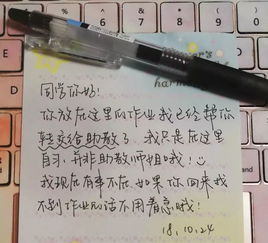 同学你好!
你放在这里的作业我已经帮你
转交给助教了。我只是在这里
自习,并非助教师姐哦!
我现在有事不在,如果你回来找
不到作业的话不用着急哦!
18.10.24